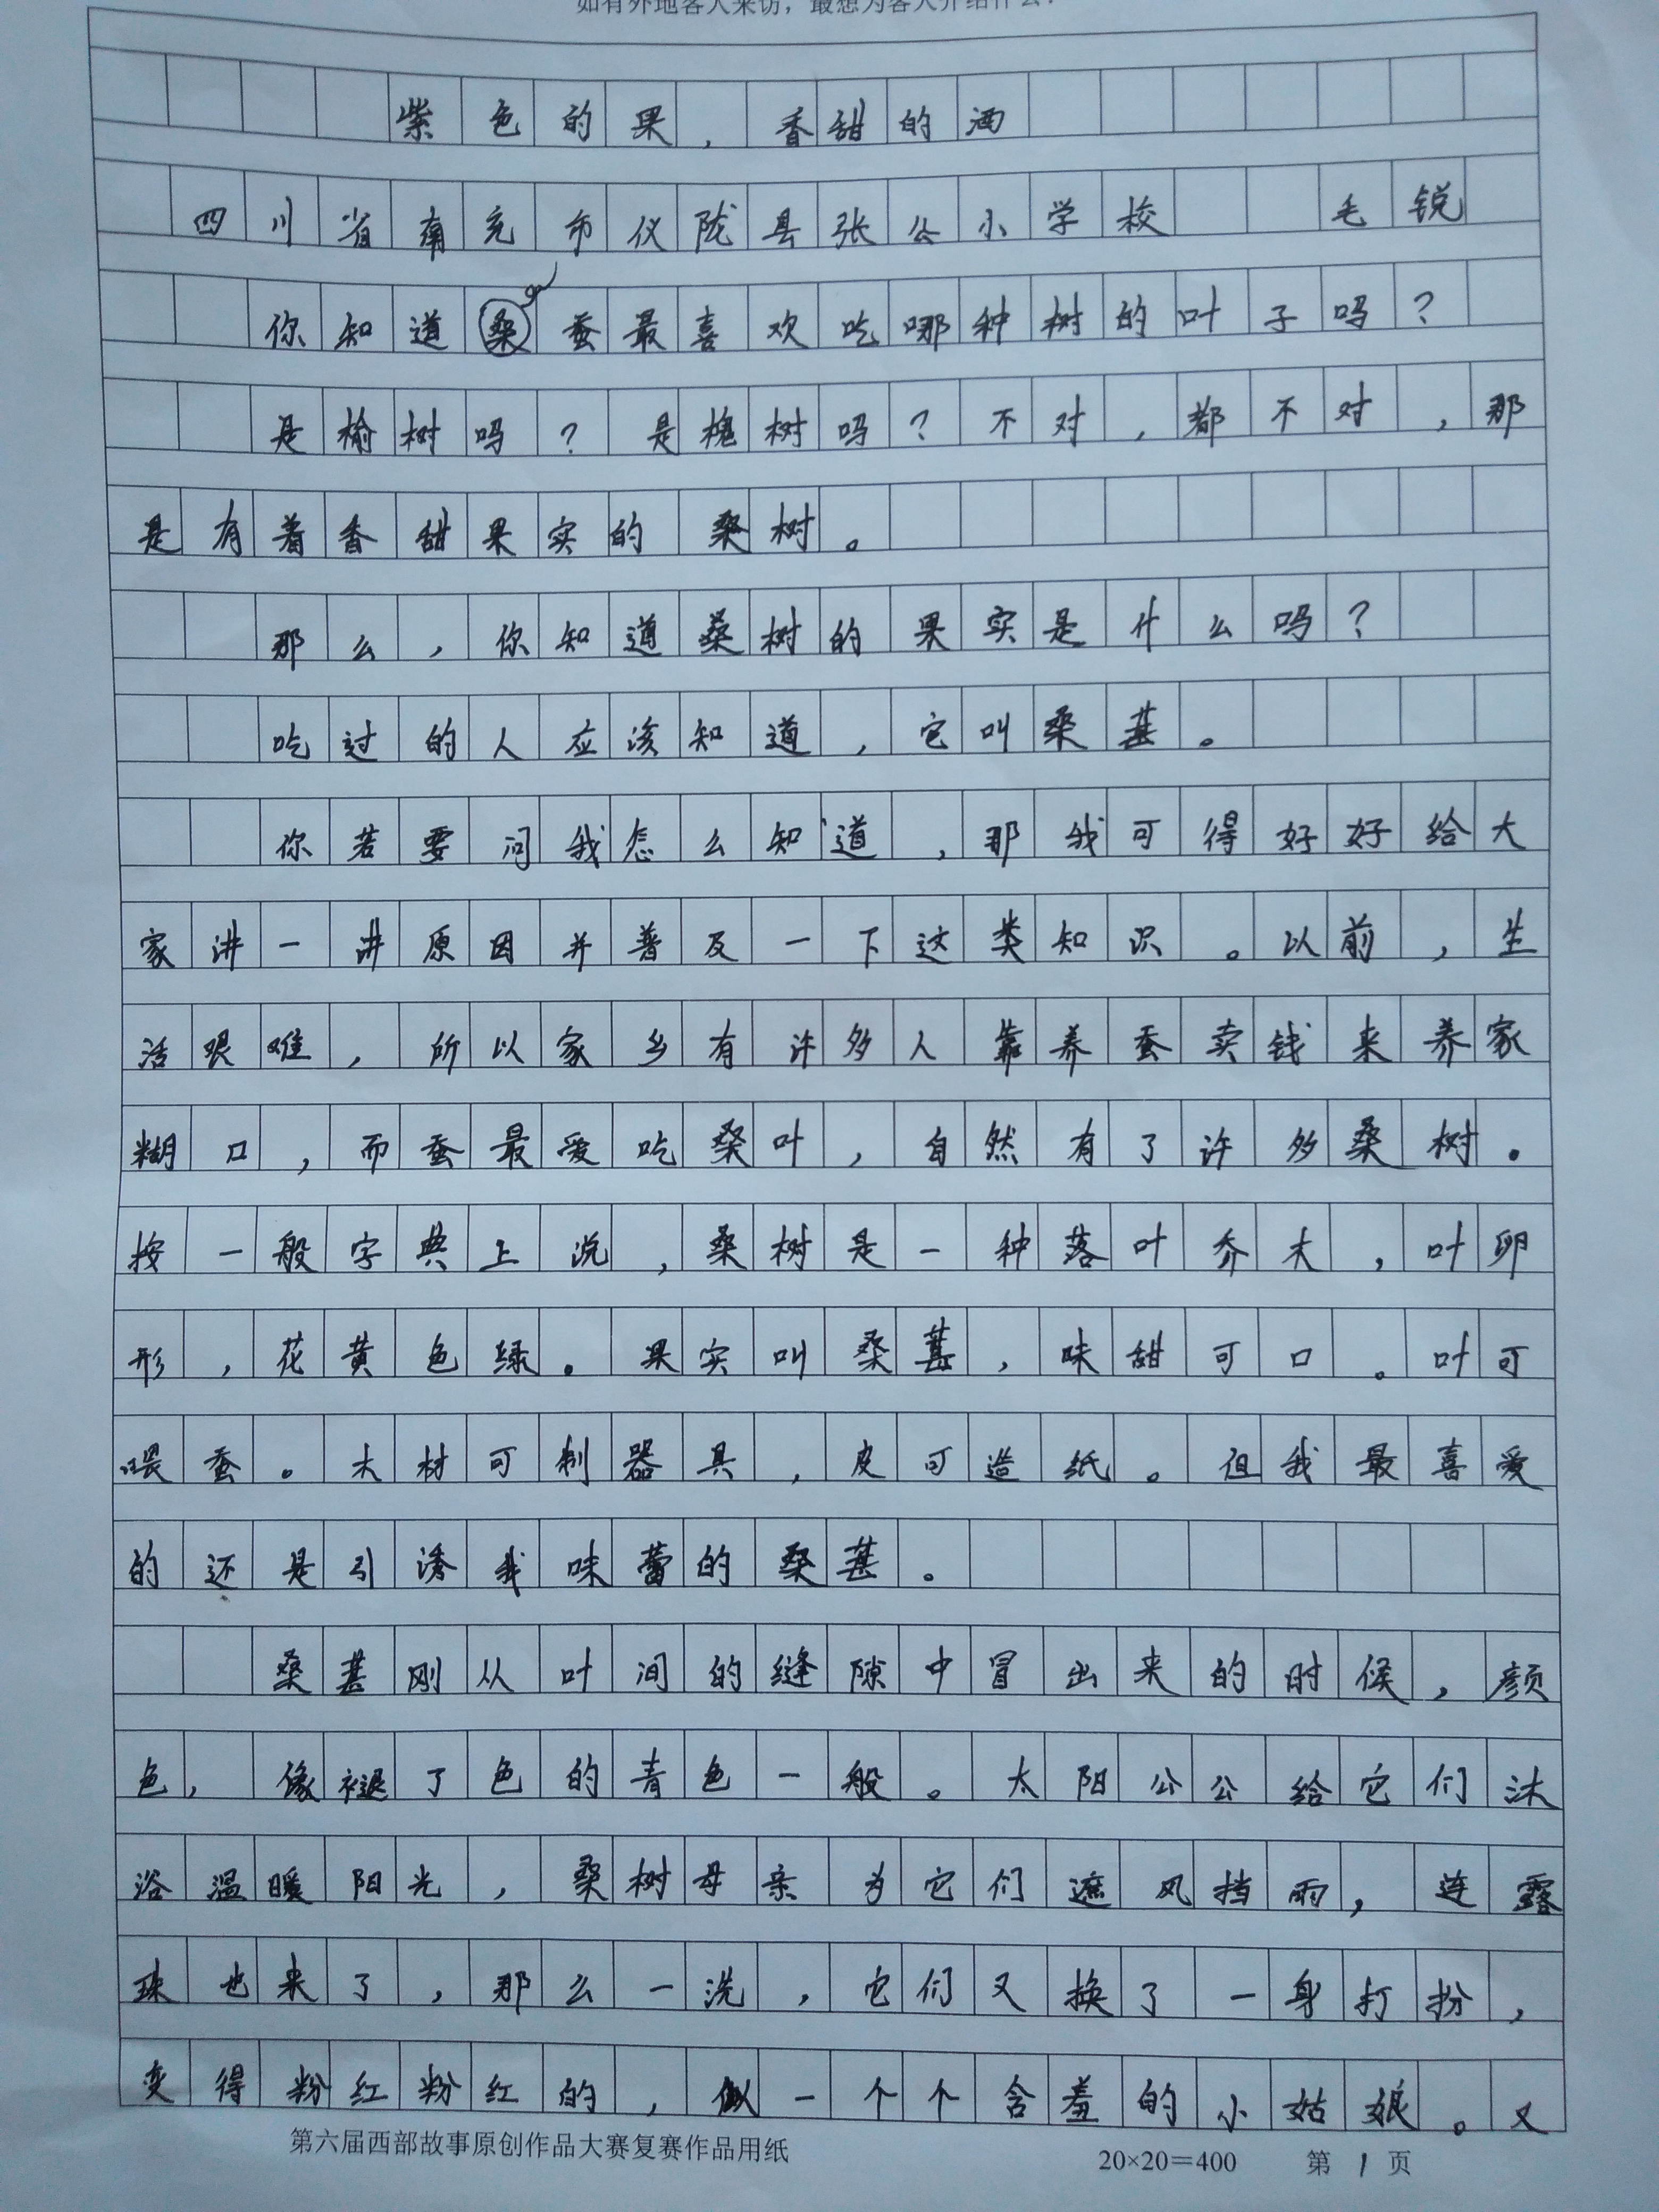 如有外地客人来访，最想为客人介绍什么？
紫色的果，香甜的酒
四川省南充市仪陇县张公小学校 毛锐
你知道桑蚕最喜欢吃哪种树的叶子吗？
是榆树吗？是槐树吗？不对，都不对，那
是有着香甜果实的桑树。
那么，你知道桑树的果实是什么吗？
吃过的人应该知道，它叫桑葚。
你若要问我怎么知道，那我可得好好给大
家讲一讲原因并普及一下这类知识。以前，生
活艰难，所以家乡有许多人靠养蚕卖钱来养家
糊口，而蚕最爱吃桑叶，自然有了许多桑树。
按一般字典上说，桑树是一种落叶乔木，叶卵
形，花黄色绿。果实叫桑葚，味甜可口。叶可
喂蚕。木材可制器具，皮可造纸。但我最喜爱
的还是引诱我味蕾的桑葚。
桑葚刚从叶间的缝隙中冒出来的时候，颜
色，像褪了色的青色一般。太阳公公给它们沐
浴温暖阳光，桑树母亲为它们遮风挡雨，连露
珠也来了，那么一洗，它们又换了一身打扮，
变得粉红粉红的，似一个个含羞的小姑娘。又
第六届西部故事原创作品大赛复赛作品用纸 20×20=400 第1页